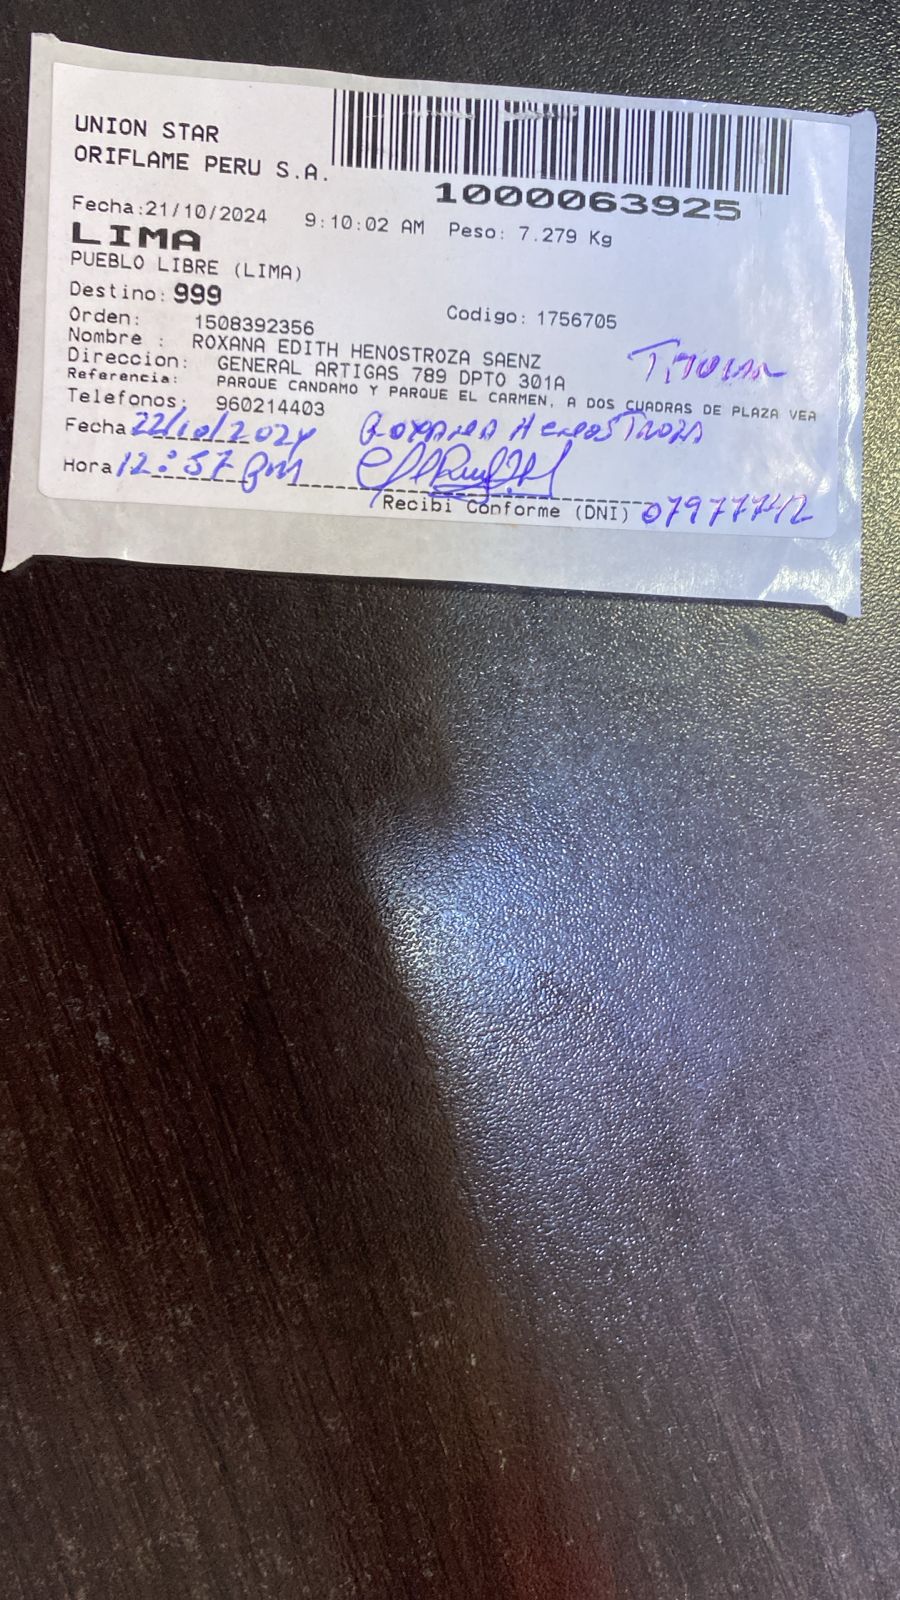 UNION STAR
ORIFLAME PERU S.A.
1000063925
Fecha:21/10/2024 9:10:02 AM Peso: 7.279 Kg
LIMA
PUEBLO LIBRE (LIMA)
Destino: 999
Orden: 1508392356 Codigo: 1756705
Nombre : ROXANA EDITH HENOSTROZA SAENZ
Direccion: GENERAL ARTIGAS 789 DPTO 301A
Titular
Referencia: PARQUE CANDAMO Y PARQUE EL CARMEN, A DOS CUADRAS DE PLAZA VEA
Telefonos: 960214403
Fecha 22/10/2024 Roxana Henostroza
Hora 12:57 pm
Recibi Conforme (DNI) 07977742